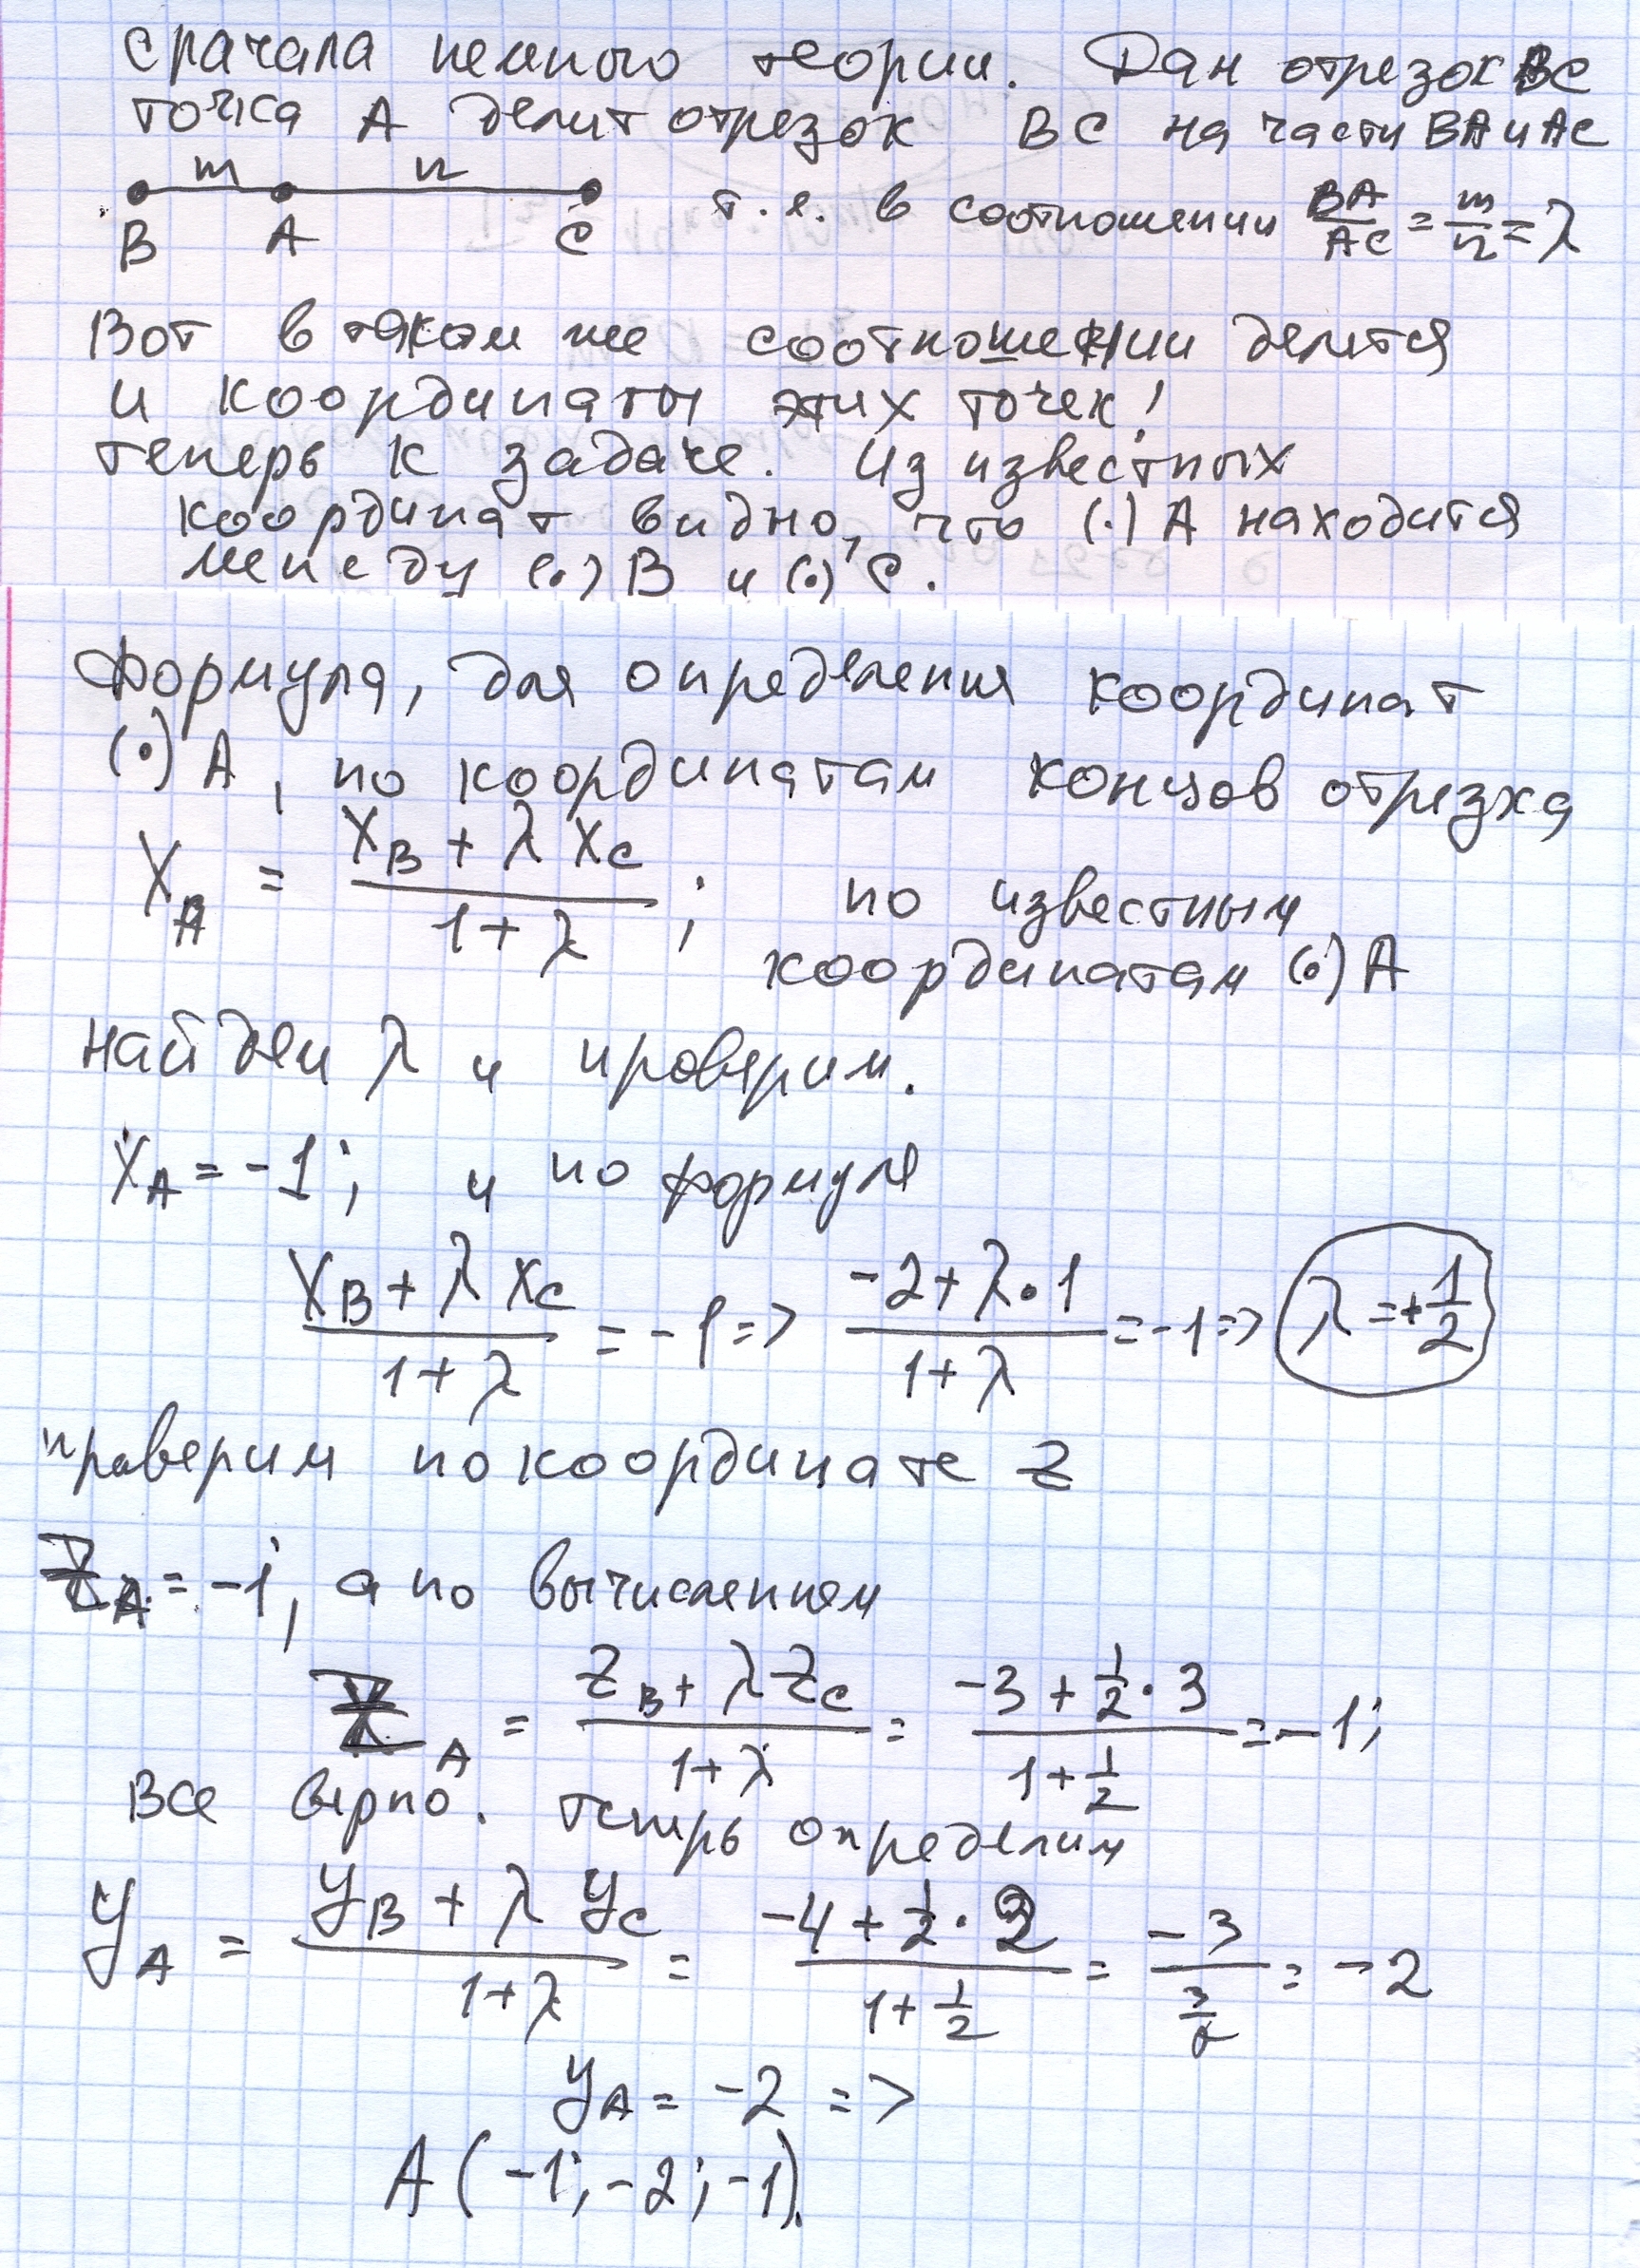 Сначала немного теории. Дан отрезок BC
точка A делит отрезок BC на части BA и AC
m n
B A C
т.е. в соотношении BA/AC = m/n = λ
Вот в таком же соотношении делится
и координаты этих точек!
теперь к задаче. Из известных
координат видно, что (·) A находится
между (·) B и (·) C.
Формула, для определения координат
(·) A, по координатам концов отрезка
X_A = (X_B + λ X_C)/(1 + λ); по известным
координатам (·) A
найдем λ и проверим.
X_A = -1; и по формуле
(X_B + λ X_C)/(1 + λ) = -1 => (-2 + λ·1)/(1 + λ) = -1 => λ = +1/2
проверим по координате Z
Z_A = -1, а по вычислениям
Z_A = (Z_B + λ Z_C)/(1 + λ) = (-3 + 1/2 · 3)/(1 + 1/2) = -1;
Все верно. теперь определим
y_A = (y_B + λ y_C)/(1 + λ) = (-4 + 1/2 · 2)/(1 + 1/2) = -3/(3/2) = -2
y_A = -2 =>
A (-1; -2; -1).